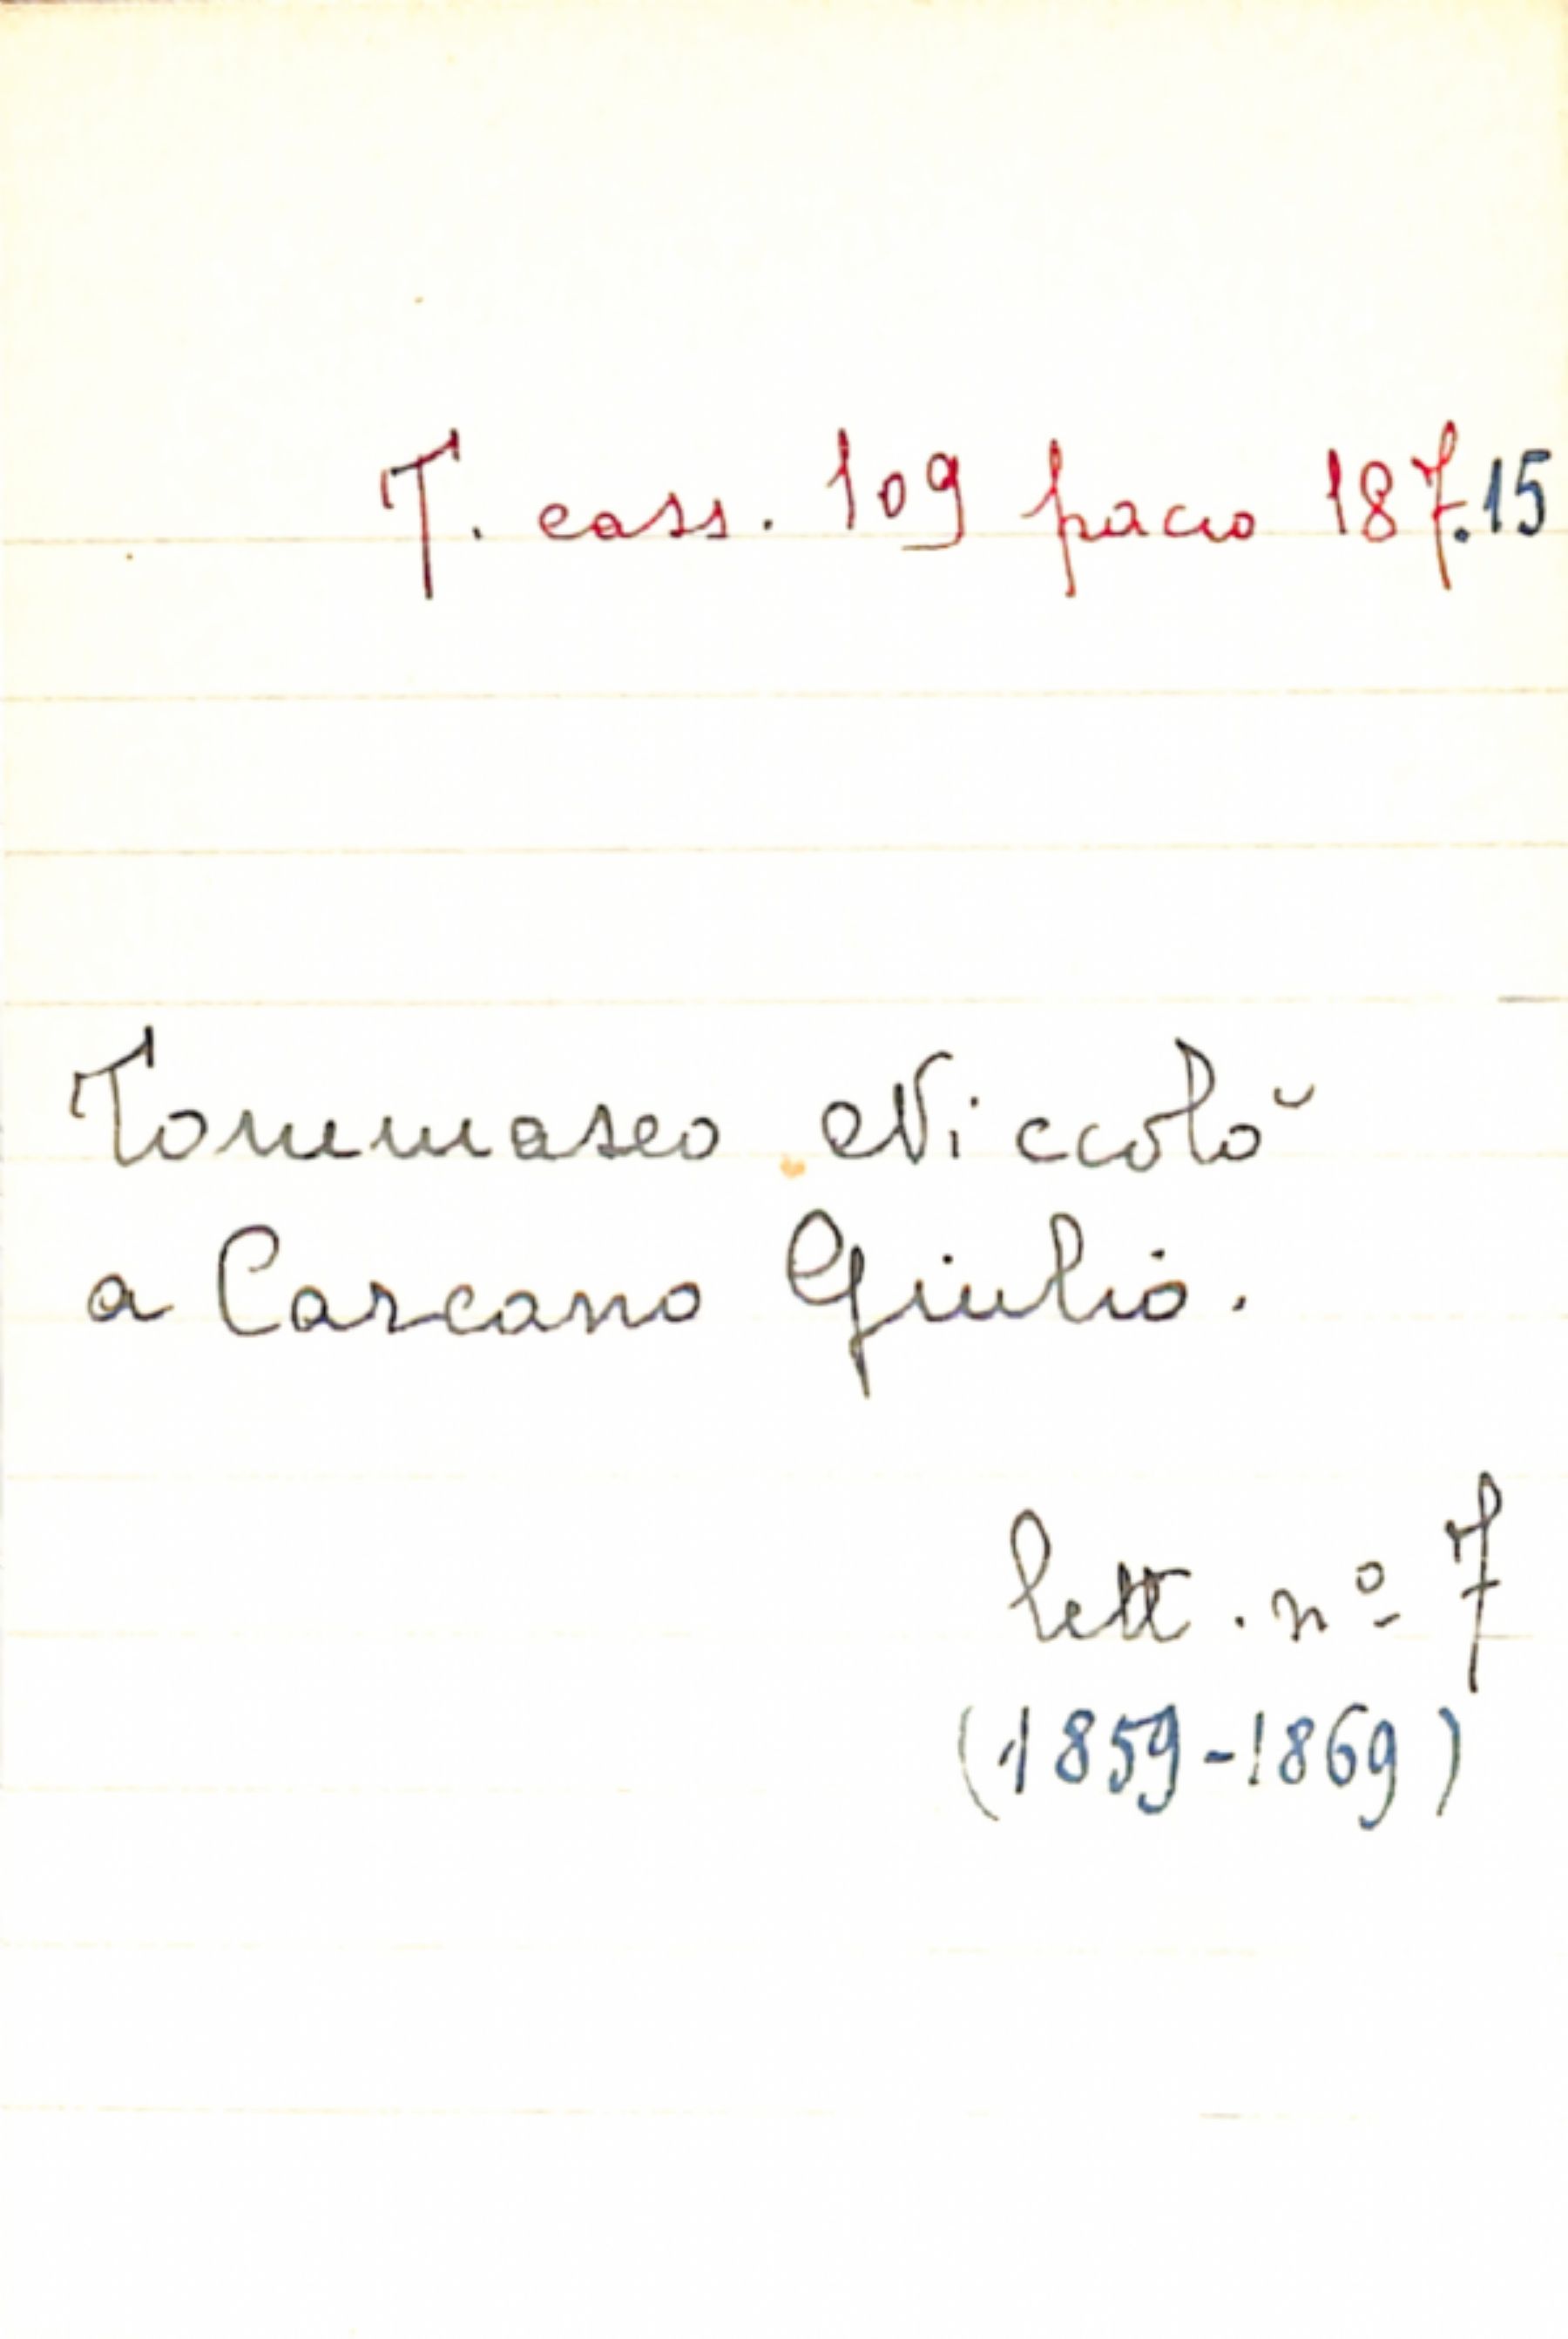 T. cass. 109 pacco 187.15
Tommaseo Niccolò
a Carcano Giulio.
lett. nº 7
(1859-1869)